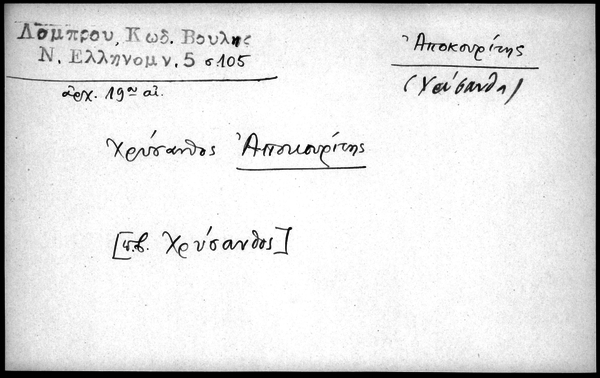 Λάμπρου, Κωδ. Βουλης
Ν. Ελληνομν. 5 σ 105
ἀρχ. 19ου αἰ.
Ἀποκουρίτης
(Χρύσανθ)
Χρύσανθος Ἀποκουρίτης
[π.β. Χρύσανθος]